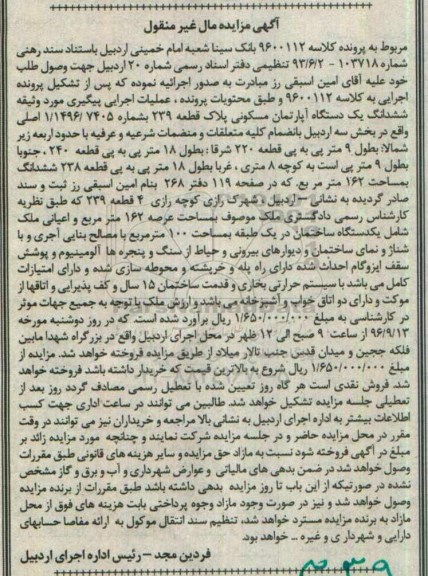 آگهی مزایده مال غیر منقول
مربوط به پرونده کلاسه ۹۶۰۰۱۱۲ بانک سینا شعبه امام خمینی اردبیل باستناد سند رهنی
شماره ۱۰۳۷۱۸ – ۹۳/۶/۲ تنظیمی دفتر اسناد رسمی شماره ۲۰ اردبیل جهت وصول طلب
خود علیه آقای امین اسبقی رز مبادرت به صدور اجرائیه نموده که پس از تشکیل پرونده
اجرایی به کلاسه ۹۶۰۰۱۱۲ و طبق محتویات پرونده ، عملیات اجرایی پیگیری مورد وثیقه
ششدانگ یک دستگاه آپارتمان مسکونی پلاک قطعه ۲۳۹ بشماره ۷۴۰۵ /۱/۱۴۹۶ اصلی
واقع در بخش سه اردبیل بانضمام کلیه متعلقات و منضمات شرعیه و عرفیه با حدود اربعه زیر
شمالا: بطول ۹ متر پی به پی قطعه ۲۲۰ شرقا : بطول ۱۸ متر پی به پی قطعه ۲۴۰ ، جنوبا
بطول ۹ متر پی است به کوچه ۸ متری ، غربا بطول ۱۸ متر پی به پی قطعه ۲۳۸ ششدانگ
بمساحت ۱۶۲ متر مربع، که در صفحه ۱۱۹ دفتر ۲۶۸ بنام امین اسبقی رز ثبت و سند
صادر گردیده به نشانی – اردبیل – شهرک رازی کوچه رازی ۴ قطعه ۲۳۹ که طبق نظریه
کارشناس رسمی دادگستری ملک موصوف بمساحت عرصه ۱۶۲ متر مربع و اعیانی ملک
شامل یکدستگاه ساختمان در یک طبقه بمساحت ۱۰۰ مترمربع با مصالح بنایی آجری و با
شناژ و نمای ساختمان و دیوارهای بیرونی و حیاط از سنگ و پنجره ها آلومینیوم و پوشش
سقف ایزوگام احداث شده دارای راه پله و خرپشته و محوطه سازی شده و دارای امتیازات
کامل می باشد با سیستم حرارتی بخاری و قدمت ساختمان ۱۵ سال و کف پذیرایی و اتاقها از
موکت و دارای دو اتاق خواب و آشپزخانه می باشد و ارزش ملک با توجه به جمیع جهات موثر
در کارشناسی به مبلغ ۱/۶۵۰/۰۰۰/۰۰۰ ریال برآورد شده است. که در روز دوشنبه مورخه
۹۶/۹/۱۳ از ساعت ۹ صبح الی ۱۲ ظهر در محل اجرای اردبیل واقع در بزرگراه شهدا مابین
فلکه ججین و میدان قدس جنب تالار میلاد از طریق مزایده فروخته خواهد شد. مزایده از
مبلغ ۱/۶۵۰/۰۰۰/۰۰۰ ریال شروع به بالاترین قیمت که خریدار داشته باشد فروخته خواهد
شد. فروش نقدی است هر گاه روز تعیین شده با تعطیل رسمی مصادف گردد روز بعد از
تعطیلی جلسه مزایده تشکیل خواهد شد. طالبین می توانند در ساعت اداری جهت کسب
اطلاعات بیشتر به اداره اجرای اردبیل به نشانی بالا مراجعه و خریداران نیز می توانند در وقت
مقرر در محل مزایده حاضر و در جلسه مزایده شرکت نمایند و چنانچه مورد مزایده زائد بر
مبلغ در آگهی فروخته شود نسبت به مازاد حق مزایده و سایر هزینه های قانونی طبق مقررات
وصول خواهد شد در ضمن بدهی های مالیاتی و عوارض شهرداری و آب و برق و گاز مشخص
نشده در صورتیکه از این باب تا روز مزایده بدهی داشته باشد طبق مقررات از برنده مزایده
وصول خواهد شد و نیز در صورت وجود مازاد وجوه پرداختی بابت هزینه های فوق از محل
مازاد به برنده مزایده مسترد خواهد شد، تنظیم سند انتقال موکول به ارائه مفاصا حسابهای
دارایی و شهرداری و غیره .. خواهد بود.
فردین مجد – رئیس اداره اجرای اردبیل